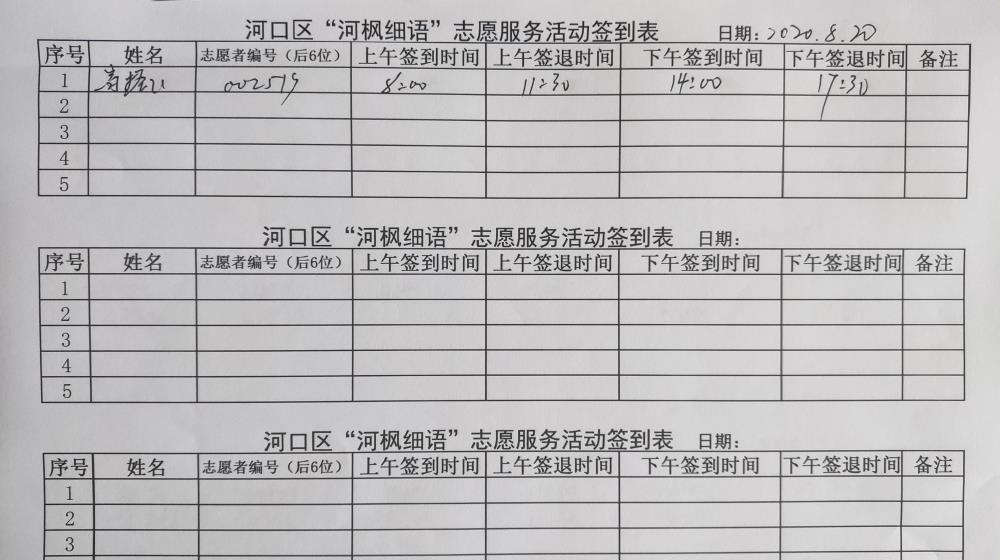 河口区“河枫细语”志愿服务活动签到表 日期:2020.8.20
序号 姓名 志愿者编号（后6位） 上午签到时间 上午签退时间 下午签到时间 下午签退时间 备注
1 002579 8:00 11:30 14:00 17:30
2
3
4
5
河口区“河枫细语”志愿服务活动签到表 日期:
序号 姓名 志愿者编号（后6位） 上午签到时间 上午签退时间 下午签到时间 下午签退时间 备注
1
2
3
4
5
河口区“河枫细语”志愿服务活动签到表 日期:
序号 姓名 志愿者编号（后6位） 上午签到时间 上午签退时间 下午签到时间 下午签退时间 备注
1
2
3